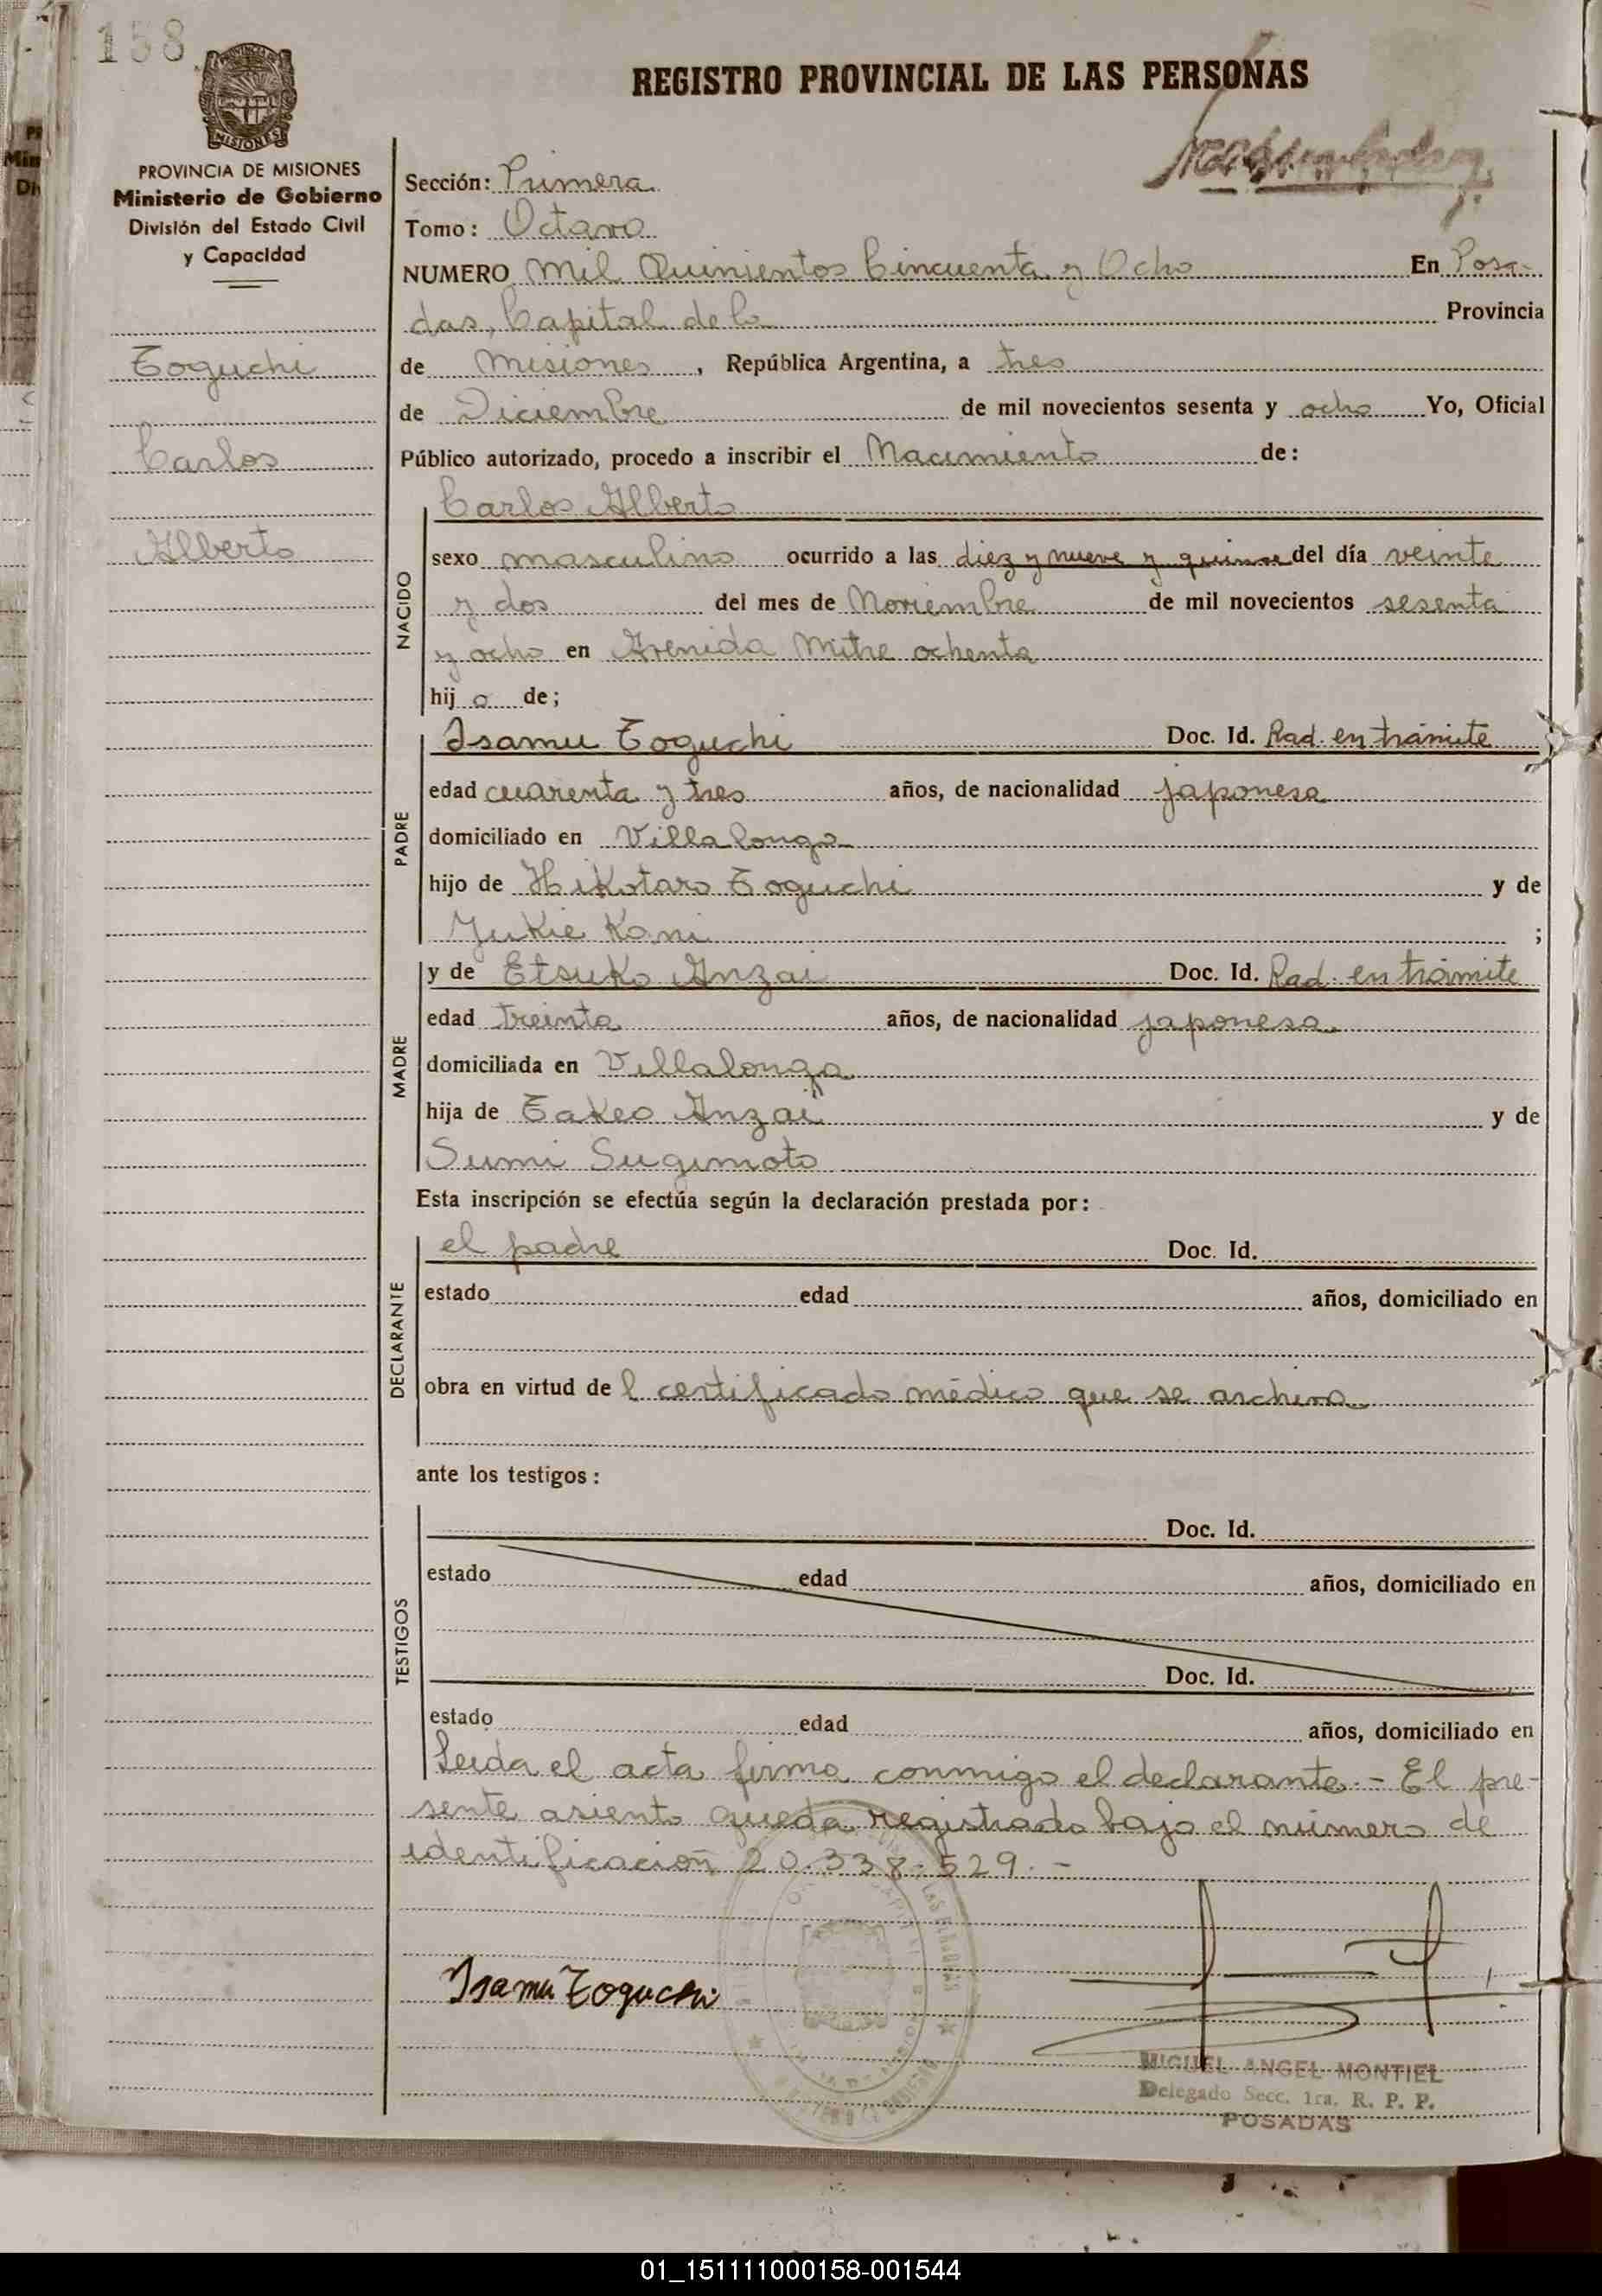 158
REGISTRO PROVINCIAL DE LAS PERSONAS
PROVINCIA DE MISIONES
Ministerio de Gobierno
División del Estado Civil
y Capacidad
Toguchi
Carlos
Alberto
Sección: Primera
Tomo: Octavo
NUMERO Mil Quinientos Cincuenta y Ocho En Posa-
das, Capital de la Provincia
de Misiones, República Argentina, a tres
de Diciembre de mil novecientos sesenta y ocho Yo, Oficial
Público autorizado, procedo a inscribir el Nacimiento de:
NACIDO
Carlos Alberto
sexo masculino ocurrido a las diez y nueve y quince del día veinte
y dos del mes de Noviembre de mil novecientos sesenta
y ocho en Avenida Mitre ochenta
hijo de;
PADRE
Isamu Toguchi Doc. Id. Rad. en trámite
edad cuarenta y tres años, de nacionalidad japonesa
domiciliado en Villalonga
hijo de Hikotaro Toguchi y de
Yukie Kani ;
MADRE
y de Etsuko Anzai Doc. Id. Rad. en trámite
edad treinta años, de nacionalidad japonesa
domiciliada en Villalonga
hija de Takeo Anzai y de
Sumi Sugimoto
Esta inscripción se efectúa según la declaración prestada por:
DECLARANTE
el padre Doc. Id.
estado edad años, domiciliado en
obra en virtud de l certificado médico que se archiva
ante los testigos:
TESTIGOS
Doc. Id.
estado edad años, domiciliado en
Doc. Id.
estado edad años, domiciliado en
Leida el acta firma conmigo el declarante.- El pre-
sente asiento queda registrado bajo el número de
identificación 20.338.529.-
Isamu Toguchi
MIGUEL ANGEL MONTIEL
Delegado Secc. 1ra. R. P. P.
POSADAS
01_151111000158-001544